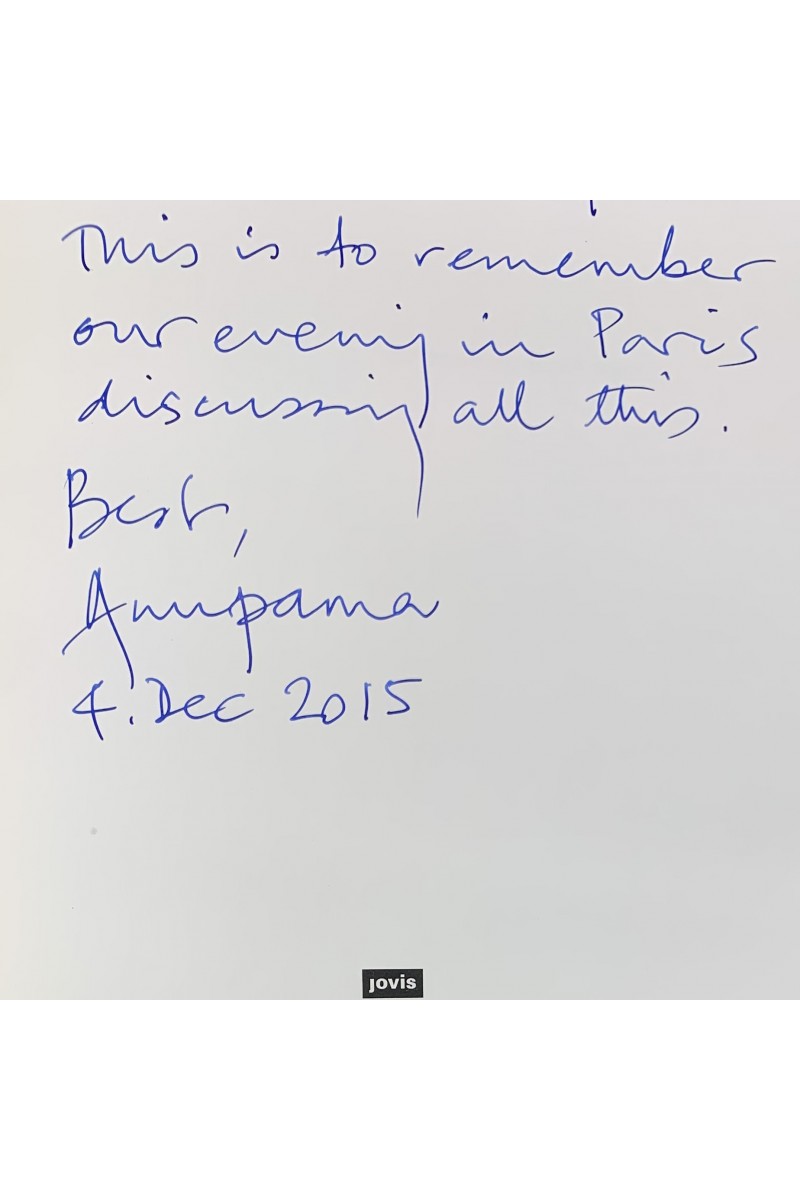 This is to remember
our evening in Paris
discussing all this.
Best,
Anupama
4. Dec 2015
jovis